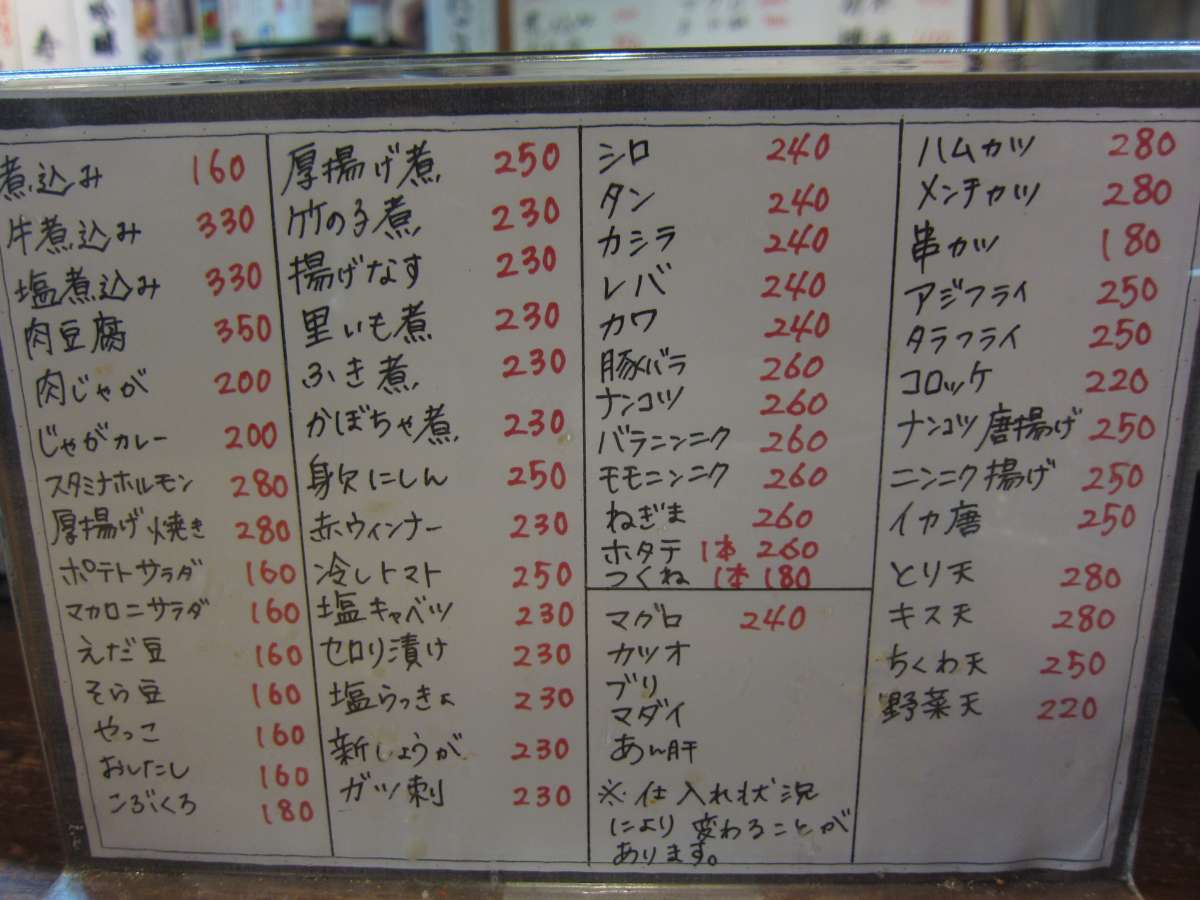 煮込み 160
牛煮込み 330
塩煮込み 330
肉豆腐 350
肉じゃが 200
じゃがカレー 200
スタミナホルモン 280
厚揚げ焼き 280
ポテトサラダ 160
マカロニサラダ 160
えだ豆 160
そら豆 160
やっこ 160
おしたし 160
こぶくろ 180
厚揚げ煮 250
竹の子煮 230
揚げなす 230
里いも煮 230
ふき煮 230
かぼちゃ煮 230
身欠にしん 250
赤ウィンナー 230
冷しトマト 250
塩キャベツ 230
セロリ漬け 230
塩らっきょ 230
新しょうが 230
ガツ刺 230
シロ 240
タン 240
カシラ 240
レバ 240
カワ 240
豚バラ 260
ナンコツ 260
バラニンニク 260
モモニンニク 260
ねぎま 260
ホタテ 1本 260
つくね 1本 180
マグロ 240
カツオ
ブリ
マダイ
あん肝
※仕入れ状況
により変わることが
あります。
ハムカツ 280
メンチカツ 280
串カツ 180
アジフライ 250
タラフライ 250
コロッケ 220
ナンコツ唐揚げ 250
ニンニク揚げ 250
イカ唐 250
とり天 280
キス天 280
ちくわ天 250
野菜天 220